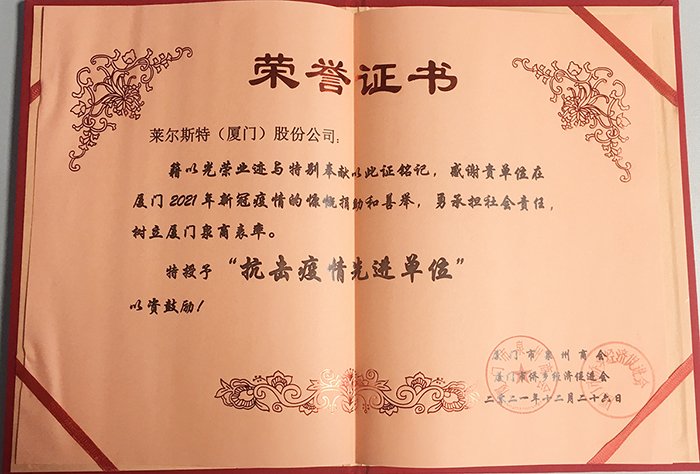 荣誉证书
莱尔斯特（厦门）股份公司：
藉以光荣业迹与特别奉献以此证铭记，感谢贵单位在
厦门2021年新冠疫情的慷慨捐助和善举，勇承担社会责任，
树立厦门泉商表率。
特授予“抗击疫情先进单位”
以资鼓励！
厦门市泉州商会
厦门市侨乡经济促进会
二零二一年十二月二十六日